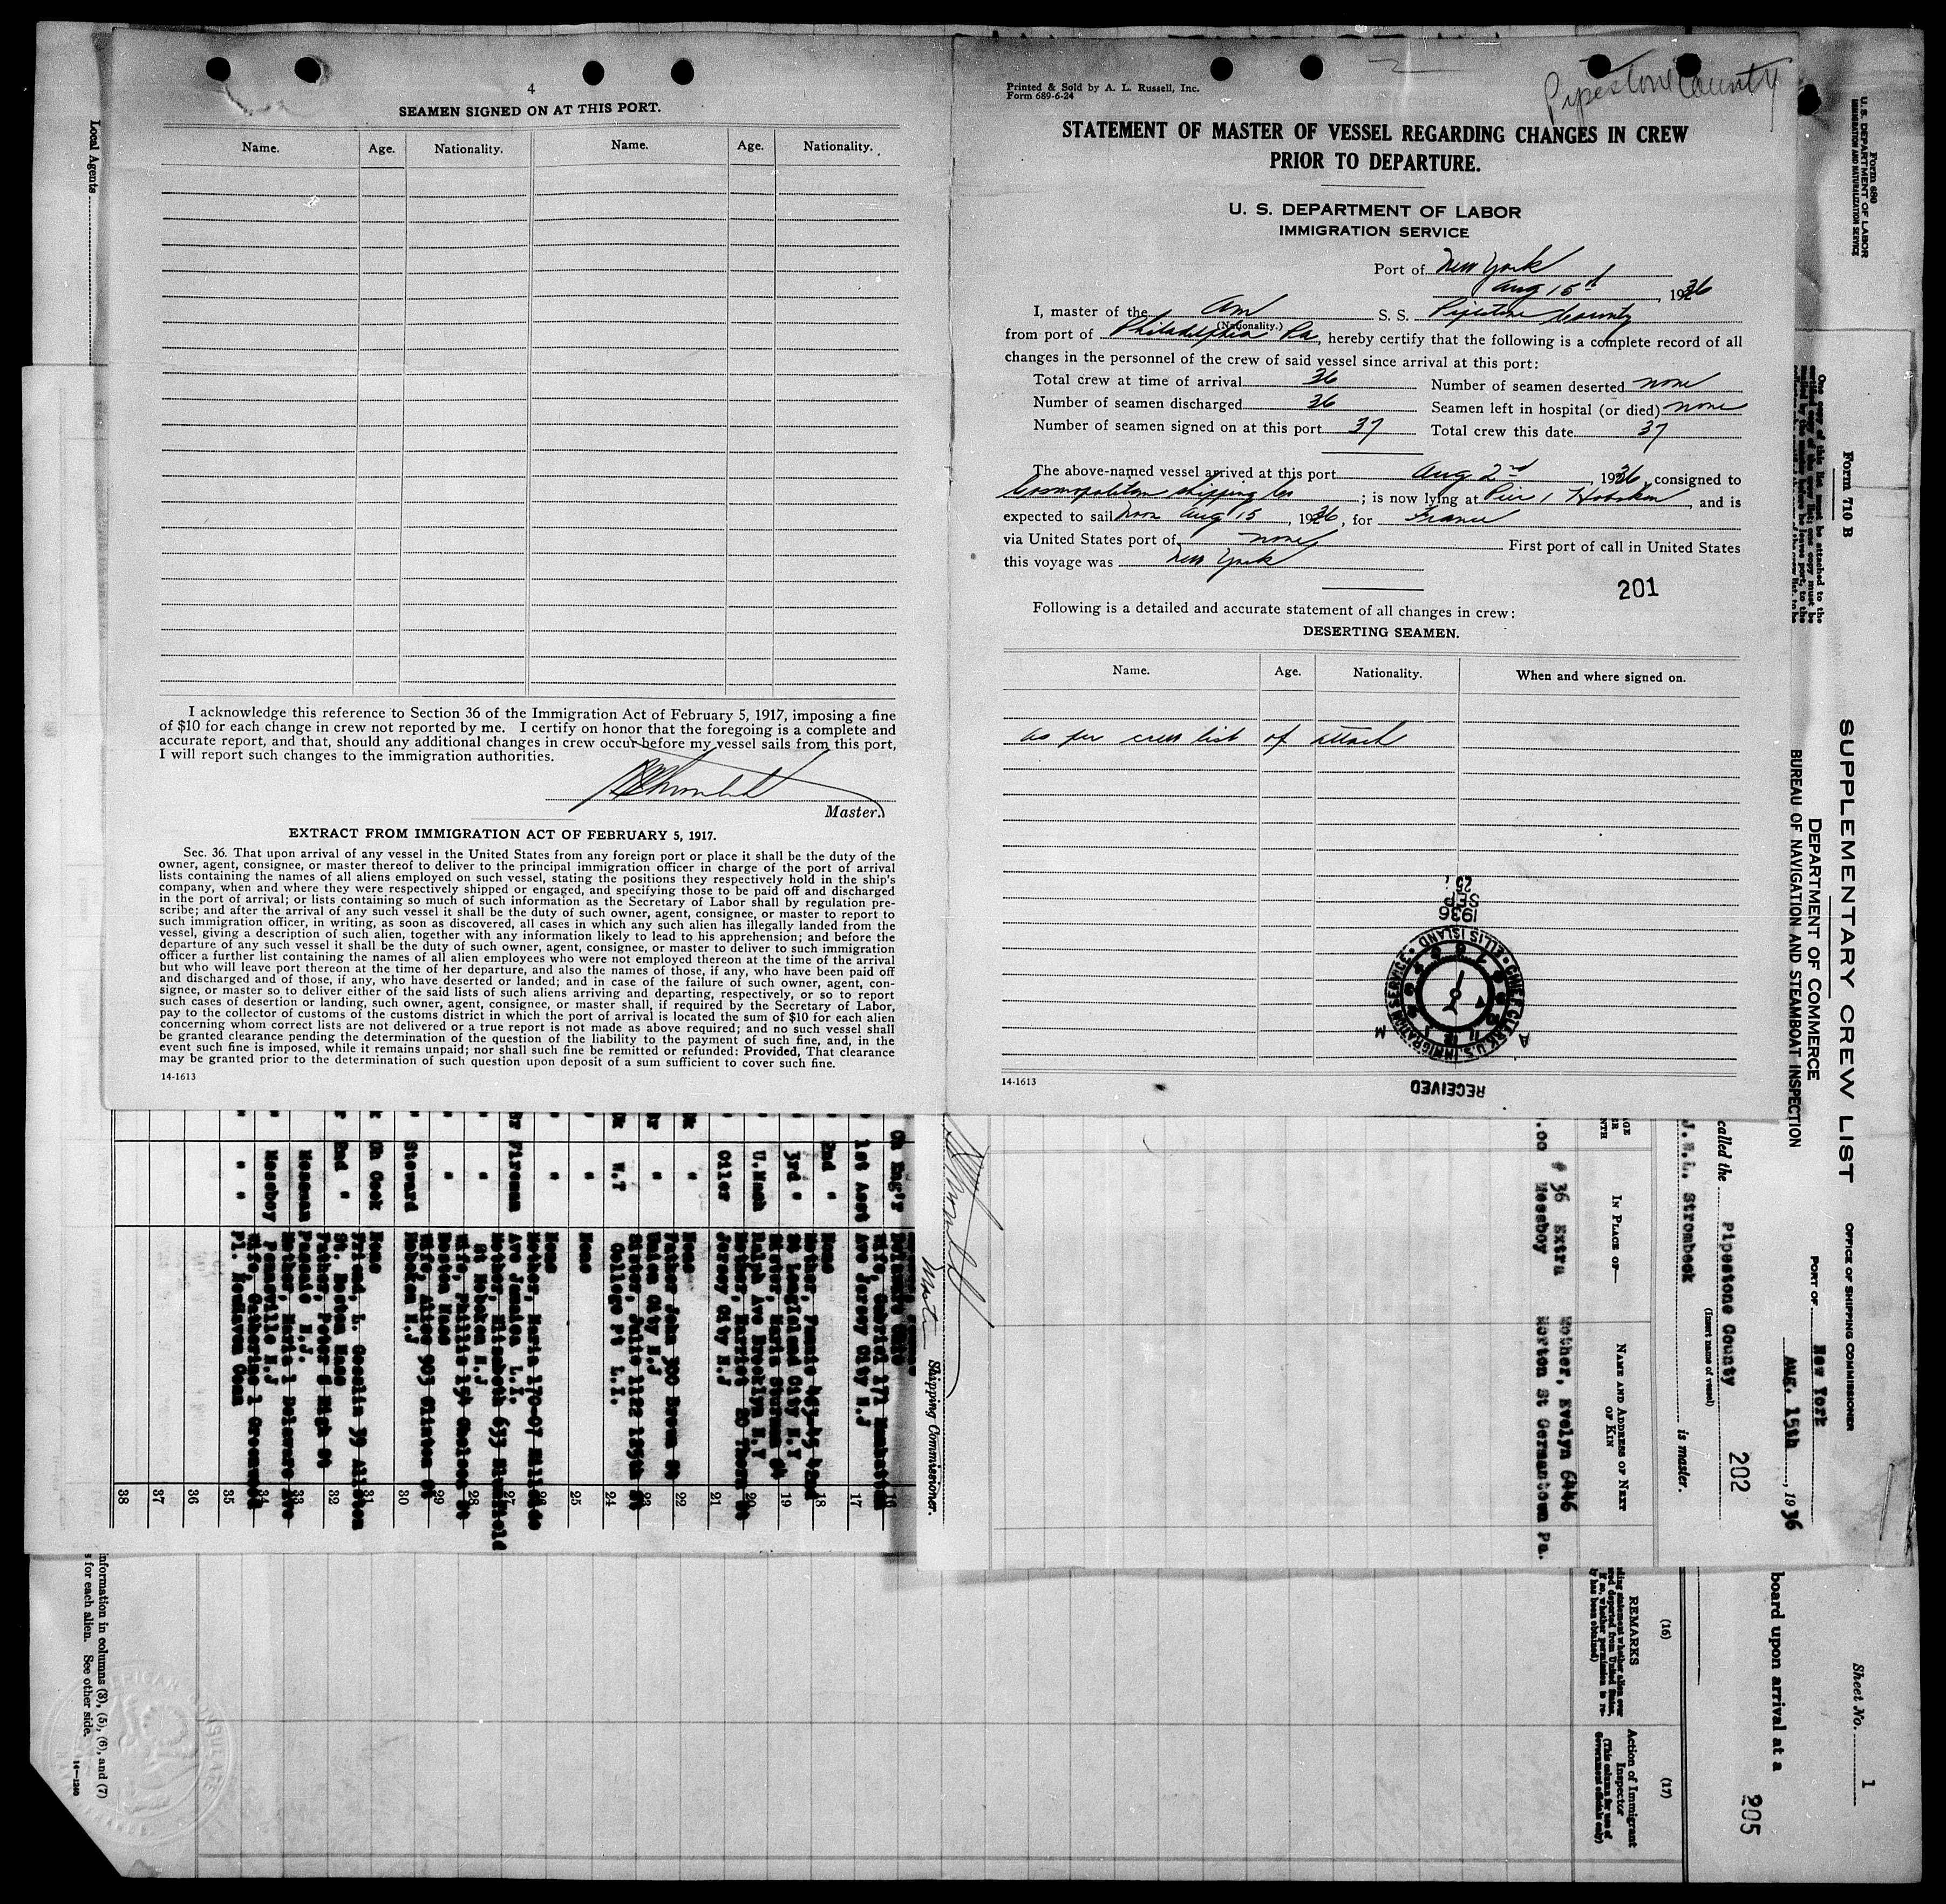 4
SEAMEN SIGNED ON AT THIS PORT.
Name. Age. Nationality. Name. Age. Nationality.
I acknowledge this reference to Section 36 of the Immigration Act of February 5, 1917, imposing a fine
of $10 for each change in crew not reported by me. I certify on honor that the foregoing is a complete and
accurate report, and that, should any additional changes in crew occur before my vessel sails from this port,
I will report such changes to the immigration authorities.
Master.
EXTRACT FROM IMMIGRATION ACT OF FEBRUARY 5, 1917.
Sec. 36. That upon arrival of any vessel in the United States from any foreign port or place it shall be the duty of the
owner, agent, consignee, or master thereof to deliver to the principal immigration officer in charge of the port of arrival
lists containing the names of all aliens employed on such vessel, stating the positions they respectively hold in the ship's
company, when and where they were respectively shipped or engaged, and specifying those to be paid off and discharged
in the port of arrival; or lists containing so much of such information as the Secretary of Labor shall by regulation pre-
scribe; and after the arrival of any such vessel it shall be the duty of such owner, agent, consignee, or master to report to
such immigration officer, in writing, as soon as discovered, all cases in which any such alien has illegally landed from the
vessel, giving a description of such alien, together with any information likely to lead to his apprehension; and before the
departure of any such vessel it shall be the duty of such owner, agent, consignee, or master to deliver to such immigration
officer a further list containing the names of all alien employees who were not employed thereon at the time of the arrival
but who will leave port thereon at the time of her departure, and also the names of those, if any, who have been paid off
and discharged and of those, if any, who have deserted or landed; and in case of the failure of such owner, agent, con-
signee, or master so to deliver either of the said lists of such aliens arriving and departing, respectively, or so to report
such cases of desertion or landing, such owner, agent, consignee, or master shall, if required by the Secretary of Labor,
pay to the collector of customs of the customs district in which the port of arrival is located the sum of $10 for each alien
concerning whom correct lists are not delivered or a true report is not made as above required; and no such vessel shall
be granted clearance pending the determination of the question of the liability to the payment of such fine, and, in the
event such fine is imposed, while it remains unpaid; nor shall such fine be remitted or refunded: Provided, That clearance
may be granted prior to the determination of such question upon deposit of a sum sufficient to cover such fine.
14-1613
Printed & Sold by A. L. Russell, Inc.
Form 689-6-24
Pipestone County
STATEMENT OF MASTER OF VESSEL REGARDING CHANGES IN CREW
PRIOR TO DEPARTURE.
U. S. DEPARTMENT OF LABOR
IMMIGRATION SERVICE
Port of New York
Aug 15th, 1936
I, master of the Am S. S. Pipestone County
(Nationality.)
from port of Philadelphia Pa, hereby certify that the following is a complete record of all
changes in the personnel of the crew of said vessel since arrival at this port:
Total crew at time of arrival 36 Number of seamen deserted none
Number of seamen discharged 36 Seamen left in hospital (or died) none
Number of seamen signed on at this port 37 Total crew this date 37
The above-named vessel arrived at this port Aug 2nd, 1936, consigned to
Cosmopolitan Shipping Co; is now lying at Pier 1 Hoboken, and is
expected to sail Noon Aug 15, 1936, for France
via United States port of none First port of call in United States
this voyage was New York
201
Following is a detailed and accurate statement of all changes in crew:
DESERTING SEAMEN.
Name. Age. Nationality. When and where signed on.
as per crew list of attach
1936
SEP
25
CHIEF CLERK U.S. IMMIGRATION SERVICE • ELLIS ISLAND •
A M
RECEIVED
14-1613
Local Agents
Form 680
U. S. DEPARTMENT OF LABOR
IMMIGRATION AND NATURALIZATION SERVICE
Form 710 B
SUPPLEMENTARY CREW LIST
DEPARTMENT OF COMMERCE
BUREAU OF NAVIGATION AND STEAMBOAT INSPECTION
OFFICE OF SHIPPING COMMISSIONER
PORT OF New York
Aug. 15th, 1936
called the Pipestone County
(Insert name of vessel)
202
Strombeck is master.
IN PLACE OF—
NAME AND ADDRESS OF NEXT
OF KIN
# 36 Extra Mother, Evelyn 6446
Messboy Morton St Germantown Pa.
Shipping Commissioner.
Ch Eng'r
1st Asst Wife, Gabriel 171 Manhattan
Ave Jersey City N.J 17
2nd " None 18
3rd " Mother, Fannie 463-45 42nd
St Long Island City N.Y 19
U.Mach Sister, Marie
Ralph Ave Brooklyn N.Y 20
Oiler Mother, Harriet
Jersey City N.J 21
" None 22
" Father John 300 Brown St
Union City N.J 23
W.T Sister, Julie 1122 125th St
College Pt L.I. 24
" None 25
" None 26
Fireman Mother, Marie 170-07 Hillside
Ave Jamaica L.I. 27
" Mother, Elizabeth 633 28
St Hoboken N.J
" Wife, Phillis 154 Chelsea St 29
Boston Mass
Steward Wife, Alice 903 Clinton St 30
Hoboken N.J
Ch Cook None 31
2nd " Friend, L. 39 Allston
St. Boston Mass 32
Messman Father, Peter 8 High St
Passaic N.J. 33
Messboy Mother, Marie 1 Delaware Ave
Pennsville N.J 34
" Wife, Catherine 1 Greenwich
Pl. Newhaven Conn 35
36
37
38
information in columns (3), (5), (6), and (7)
s for each alien. See other side.
14-1240
AMERICAN CONSULATE
Sheet No. 1
board upon arrival at a
205
(16)
REMARKS
(17)
Action of Immigrant
Inspector
(This column for use of
Government officials only)